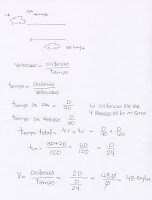 Velocidad = Distancia / Tiempo
tiempo = Distancia / Velocidad
tiempo DE IDA = D/40
lo Distancia DE IDA
y REGRESO ES la misma
tiempo DE REGRESO D/60
tiempo total = t₁ + t₂ = D/40 + D/60
= 3D + 2D / 120 = 5D / 120 = D / 24
V = Distancia / Tiempo = 2D / D/24 = 48D / D = 48 km/h